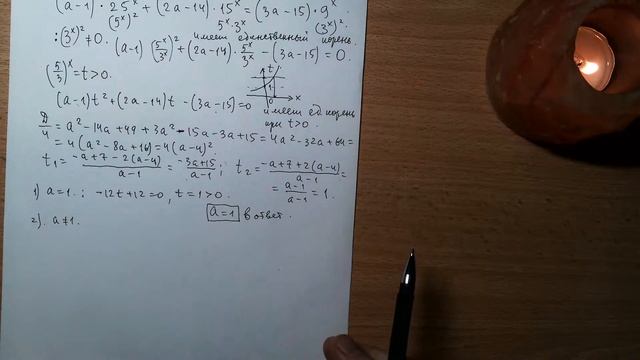 (a-1)·25^x + (2a-14)·15^x = (3a-15)·9^x
(5^x)^2 5^x·3^x (3^x)^2.
имеет единственный корень.
:(3^x)^2 ≠ 0. (a-1)(5^x/3^x)^2 + (2a-14)·5^x/3^x - (3a-15) = 0.
(5/3)^x = t > 0.
t
1
0 x
(a-1)t^2 + (2a-14)t - (3a-15) = 0 имеет ед корень
при t>0.
D/4 = a^2 - 14a + 49 + 3a^2 - 15a - 3a + 15 = 4a^2 - 32a + 64 =
= 4(a^2 - 8a + 16) = 4(a-4)^2.
t1 = (-a+7-2(a-4))/(a-1) = (-3a+15)/(a-1); t2 = (-a+7+2(a-4))/(a-1) =
= (a-1)/(a-1) = 1.
1) a=1. : -12t+12=0, t=1>0.
a=1 в ответ.
2). a≠1.